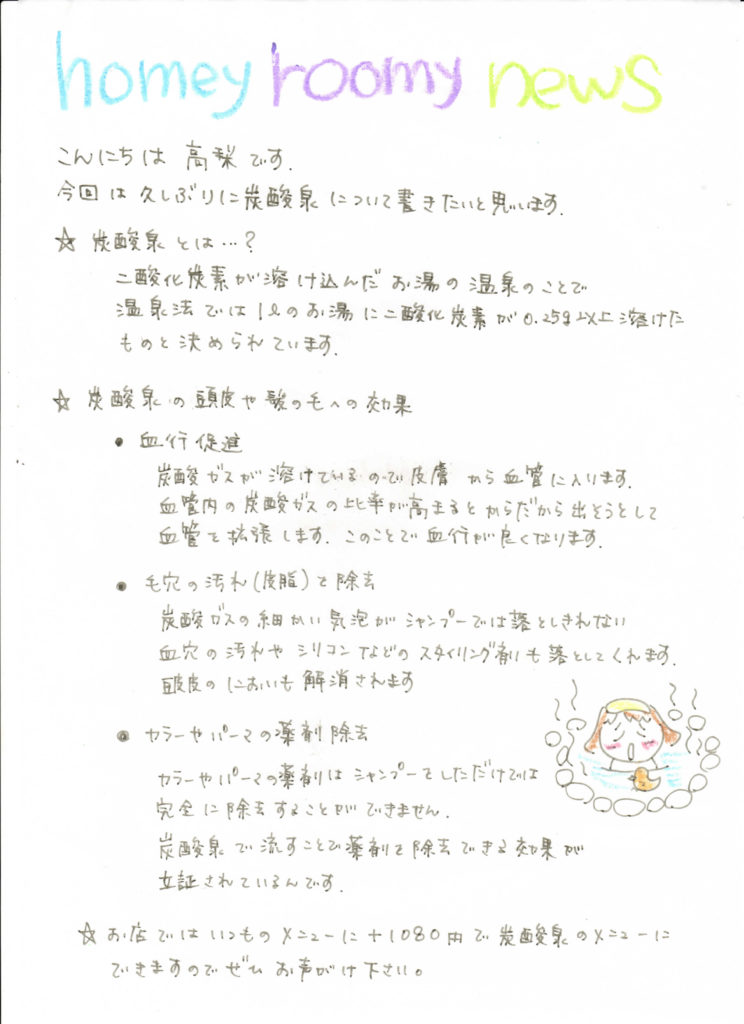 homey roomy news
こんにちは 高梨です.
今回は久しぶりに炭酸泉について書きたいと思います.
☆ 炭酸泉とは…?
二酸化炭素が溶け込んだお湯の温泉のことで
温泉法では1ℓのお湯に二酸化炭素が0.25g以上溶けた
ものと決められています.
☆ 炭酸泉の頭皮や髪の毛への効果
• 血行促進
炭酸ガスが溶けているので皮膚から血管に入ります.
血管内の炭酸ガスの比率が高まるとからだから出そうとして
血管を拡張します. このことで血行が良くなります.
• 毛穴の汚れ(皮脂)を除去
炭酸ガスの細かい気泡がシャンプーでは落としきれない
血穴の汚れやシリコンなどのスタイリング剤も落としてくれます.
頭皮のにおいも解消されます
• カラーやパーマの薬剤除去
カラーやパーマの薬剤はシャンプーをしただけでは
完全に除去することができません.
炭酸泉で流すことで薬剤を除去できる効果が
立証されているんです.
☆ お店ではいつものメニューに+1080円で炭酸泉のメニューに
できますのでぜひお声がけ下さい。